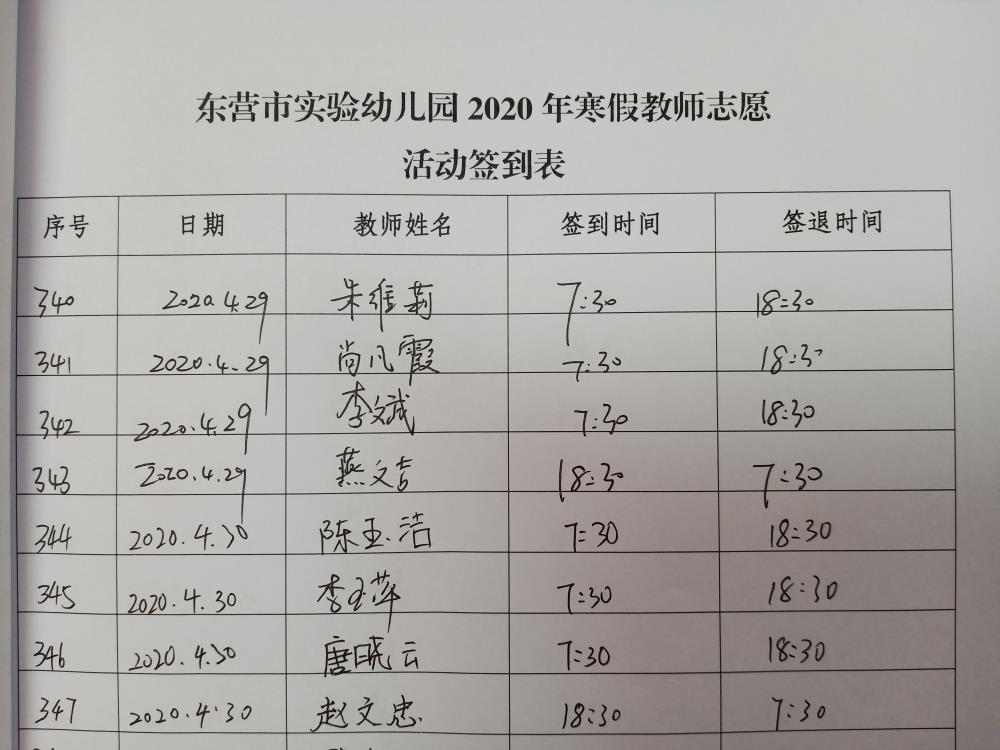 东营市实验幼儿园 2020 年寒假教师志愿
活动签到表
序号 日期 教师姓名 签到时间 签退时间
340 2020.4.29 朱维莉 7:30 18:30
341 2020.4.29 尚凡霞 7:30 18:30
342 2020.4.29 李文斌 7:30 18:30
343 2020.4.29 燕文吉 18:30 7:30
344 2020.4.30 陈玉洁 7:30 18:30
345 2020.4.30 李玉萍 7:30 18:30
346 2020.4.30 唐晓云 7:30 18:30
347 2020.4.30 赵文忠 18:30 7:30